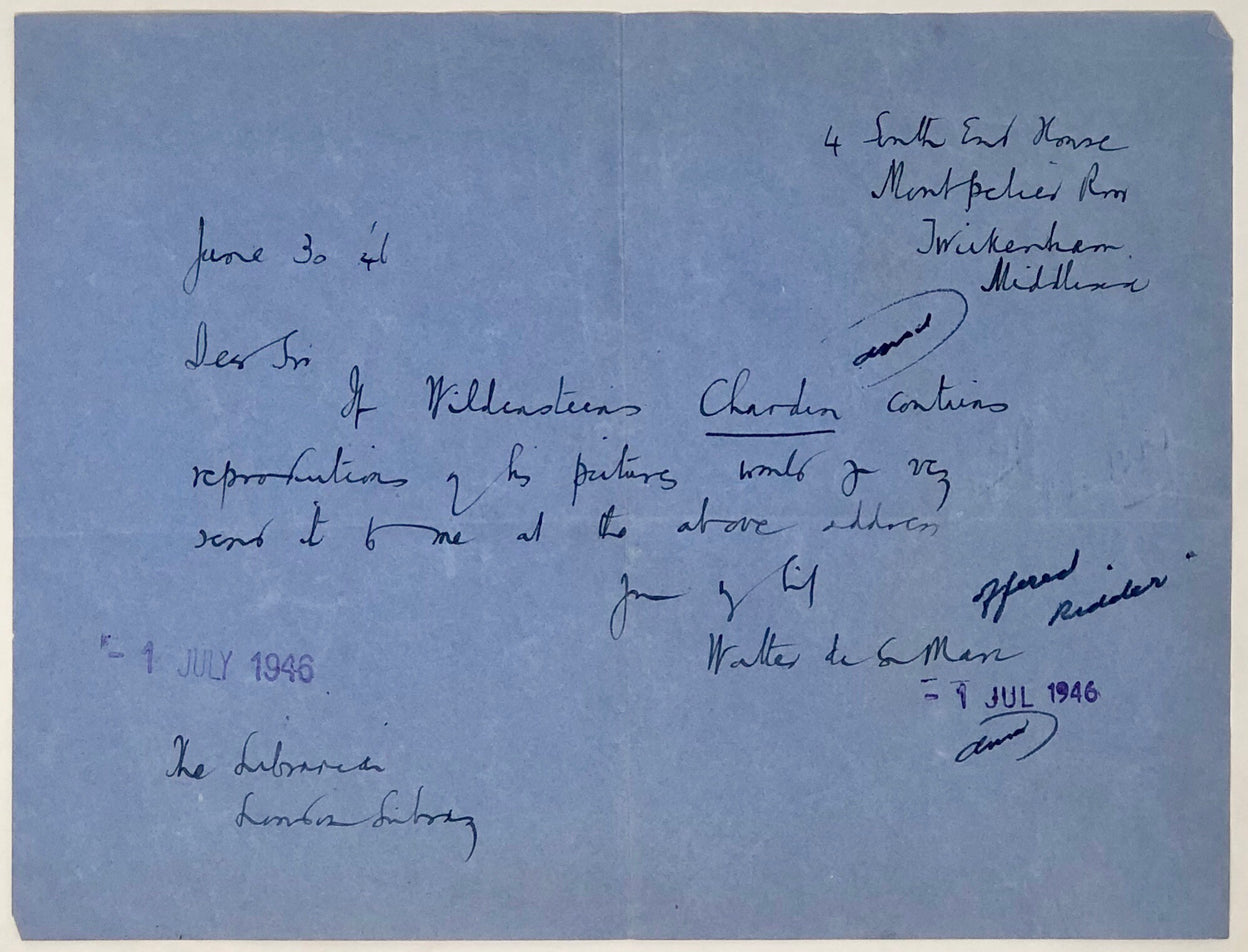 4 South End House
Montpelier Row
Twickenham
Middlesex
June 30 '46
Dear Sir
If Wildensteins Chardin contains
reproductions of his pictures would you
send it to me at the above address
Walter de la Mare
offered
"Ridder"
- 1 JULY 1946
- 1 JUL 1946
The Librarian
London Library